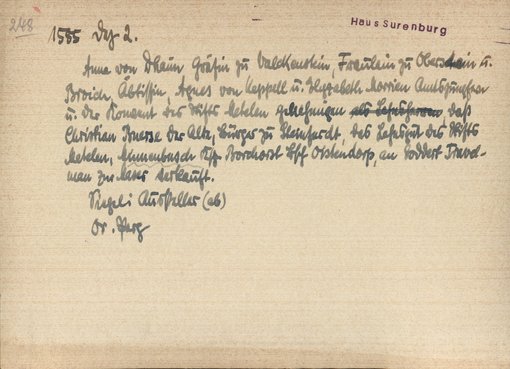 248
Haus Surenburg
1585 Dez 2.
Anna von Dhaun Gräfin zu Valckenstein, Fräulein zu Oberstein u.
Broich, Äbtissin, Agnes von Keppell u. Elyzabeth Morrien Amtsjungfern
u. der Konvent des Stifts Metelen genehmigen als Lehnsherrn, daß
Christian der Alte, Bürger zu Steinfurdt, das Lehngut des Stifts
Metelen, Ksp. Borchorst Bsch Ostendorp, an Goddert Travel-
man zu verkauft.
Siegel: Aussteller (ab)
Or. Perg